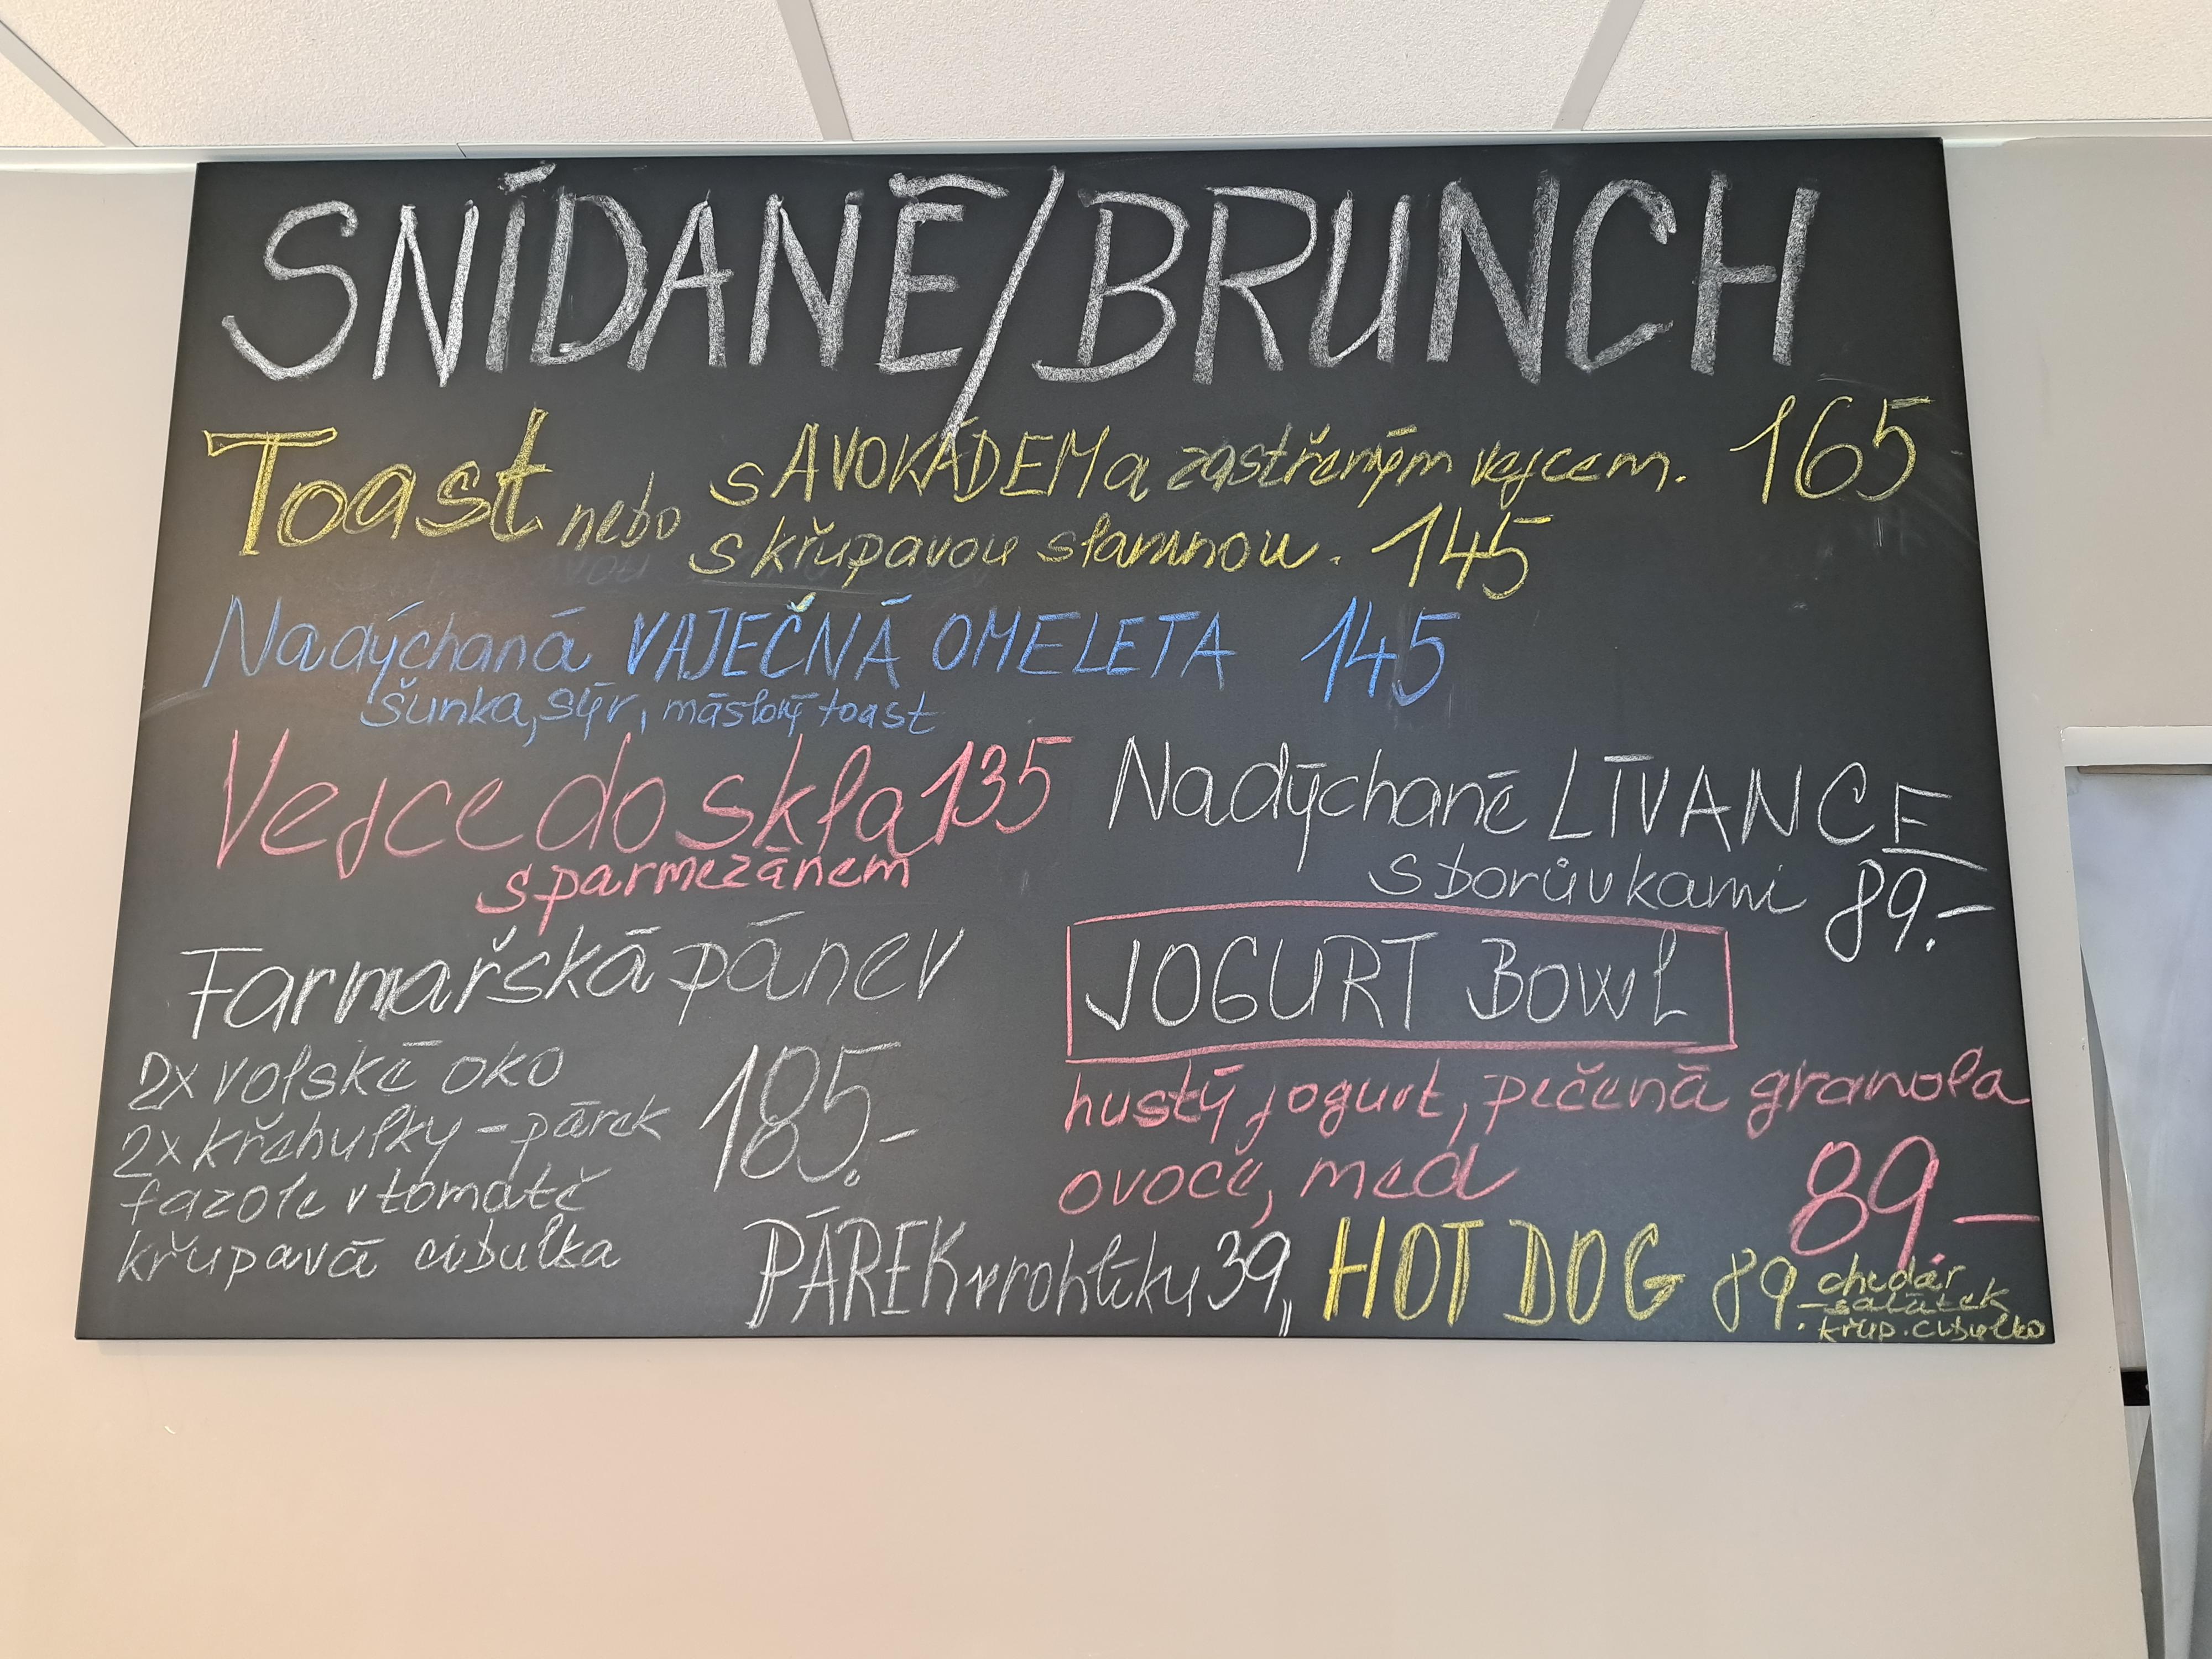 SNÍDANĚ/BRUNCH
Toast s AVOKÁDEM a zastřeným vejcem. 165
nebo s křupavou slaninou. 145
Nadýchaná VAJEČNÁ OMELETA 145
šunka, sýr, máslový toast
Vejce do skla 135
s parmezánem
Nadýchané LÍVANCE
s borůvkami 89.-
Farmářská pánev
2x volské oko
2x křehulky - párek
fazole v tomatě
křupavá cibulka
185.-
JOGURT BOWL
hustý jogurt, pečená granola
ovoce, med
89.-
PÁREK v rohlíku 39,,
HOT DOG 89.-
chedár
salátek
křup. cibulka